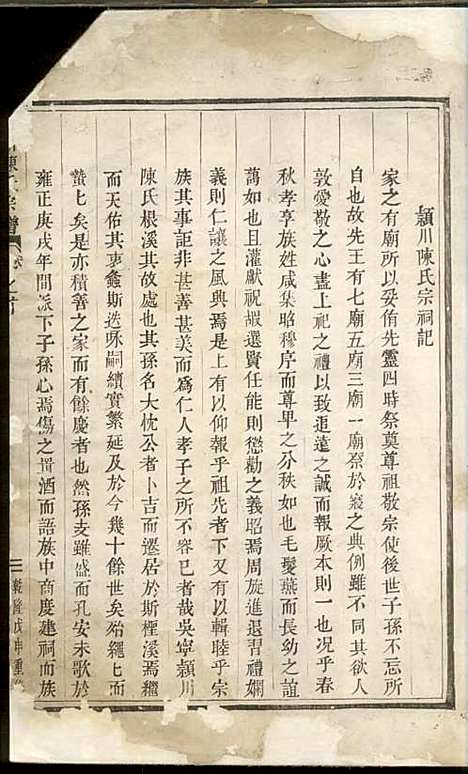 頴川陳氏宗祠記
家之有廟所以妥侑先靈四時祭奠尊祖敬宗使後世子孫不忘所
自也故先王有七廟五廟三廟一廟祭於寢之典例雖不同其欲人
敦愛敬之心盡上祀之禮以致追遠之誠而報厥本則一也况乎春
秋孝享族姓咸集昭穆序而尊卑之分秩如也毛髮燕而長幼之誼
藹如也且灌獻祝嘏選賢任能則懲勸之義昭焉周旋進退習禮嫻
義則仁讓之風興焉是上有以仰報乎祖先者下有以輯睦乎宗
族其事詎非甚善甚美而爲仁人孝子之所不容已者哉吳寧頴川
陳氏根溪其故居也其孫名大忱公者卜吉而遷居於斯檉溪焉繼
而天佑其衷螽斯迭咏嗣續實繁延及於今幾十餘世矣殆繩匕而
蟄匕矣是亦積善之家而有餘慶者也然孫支雖盛而孔安未歌於
雍正庚戌年間派下子孫心焉傷之置酒而語族中商慶建祠而族
陳氏宗譜
卷之首
三
乾隆戊申重